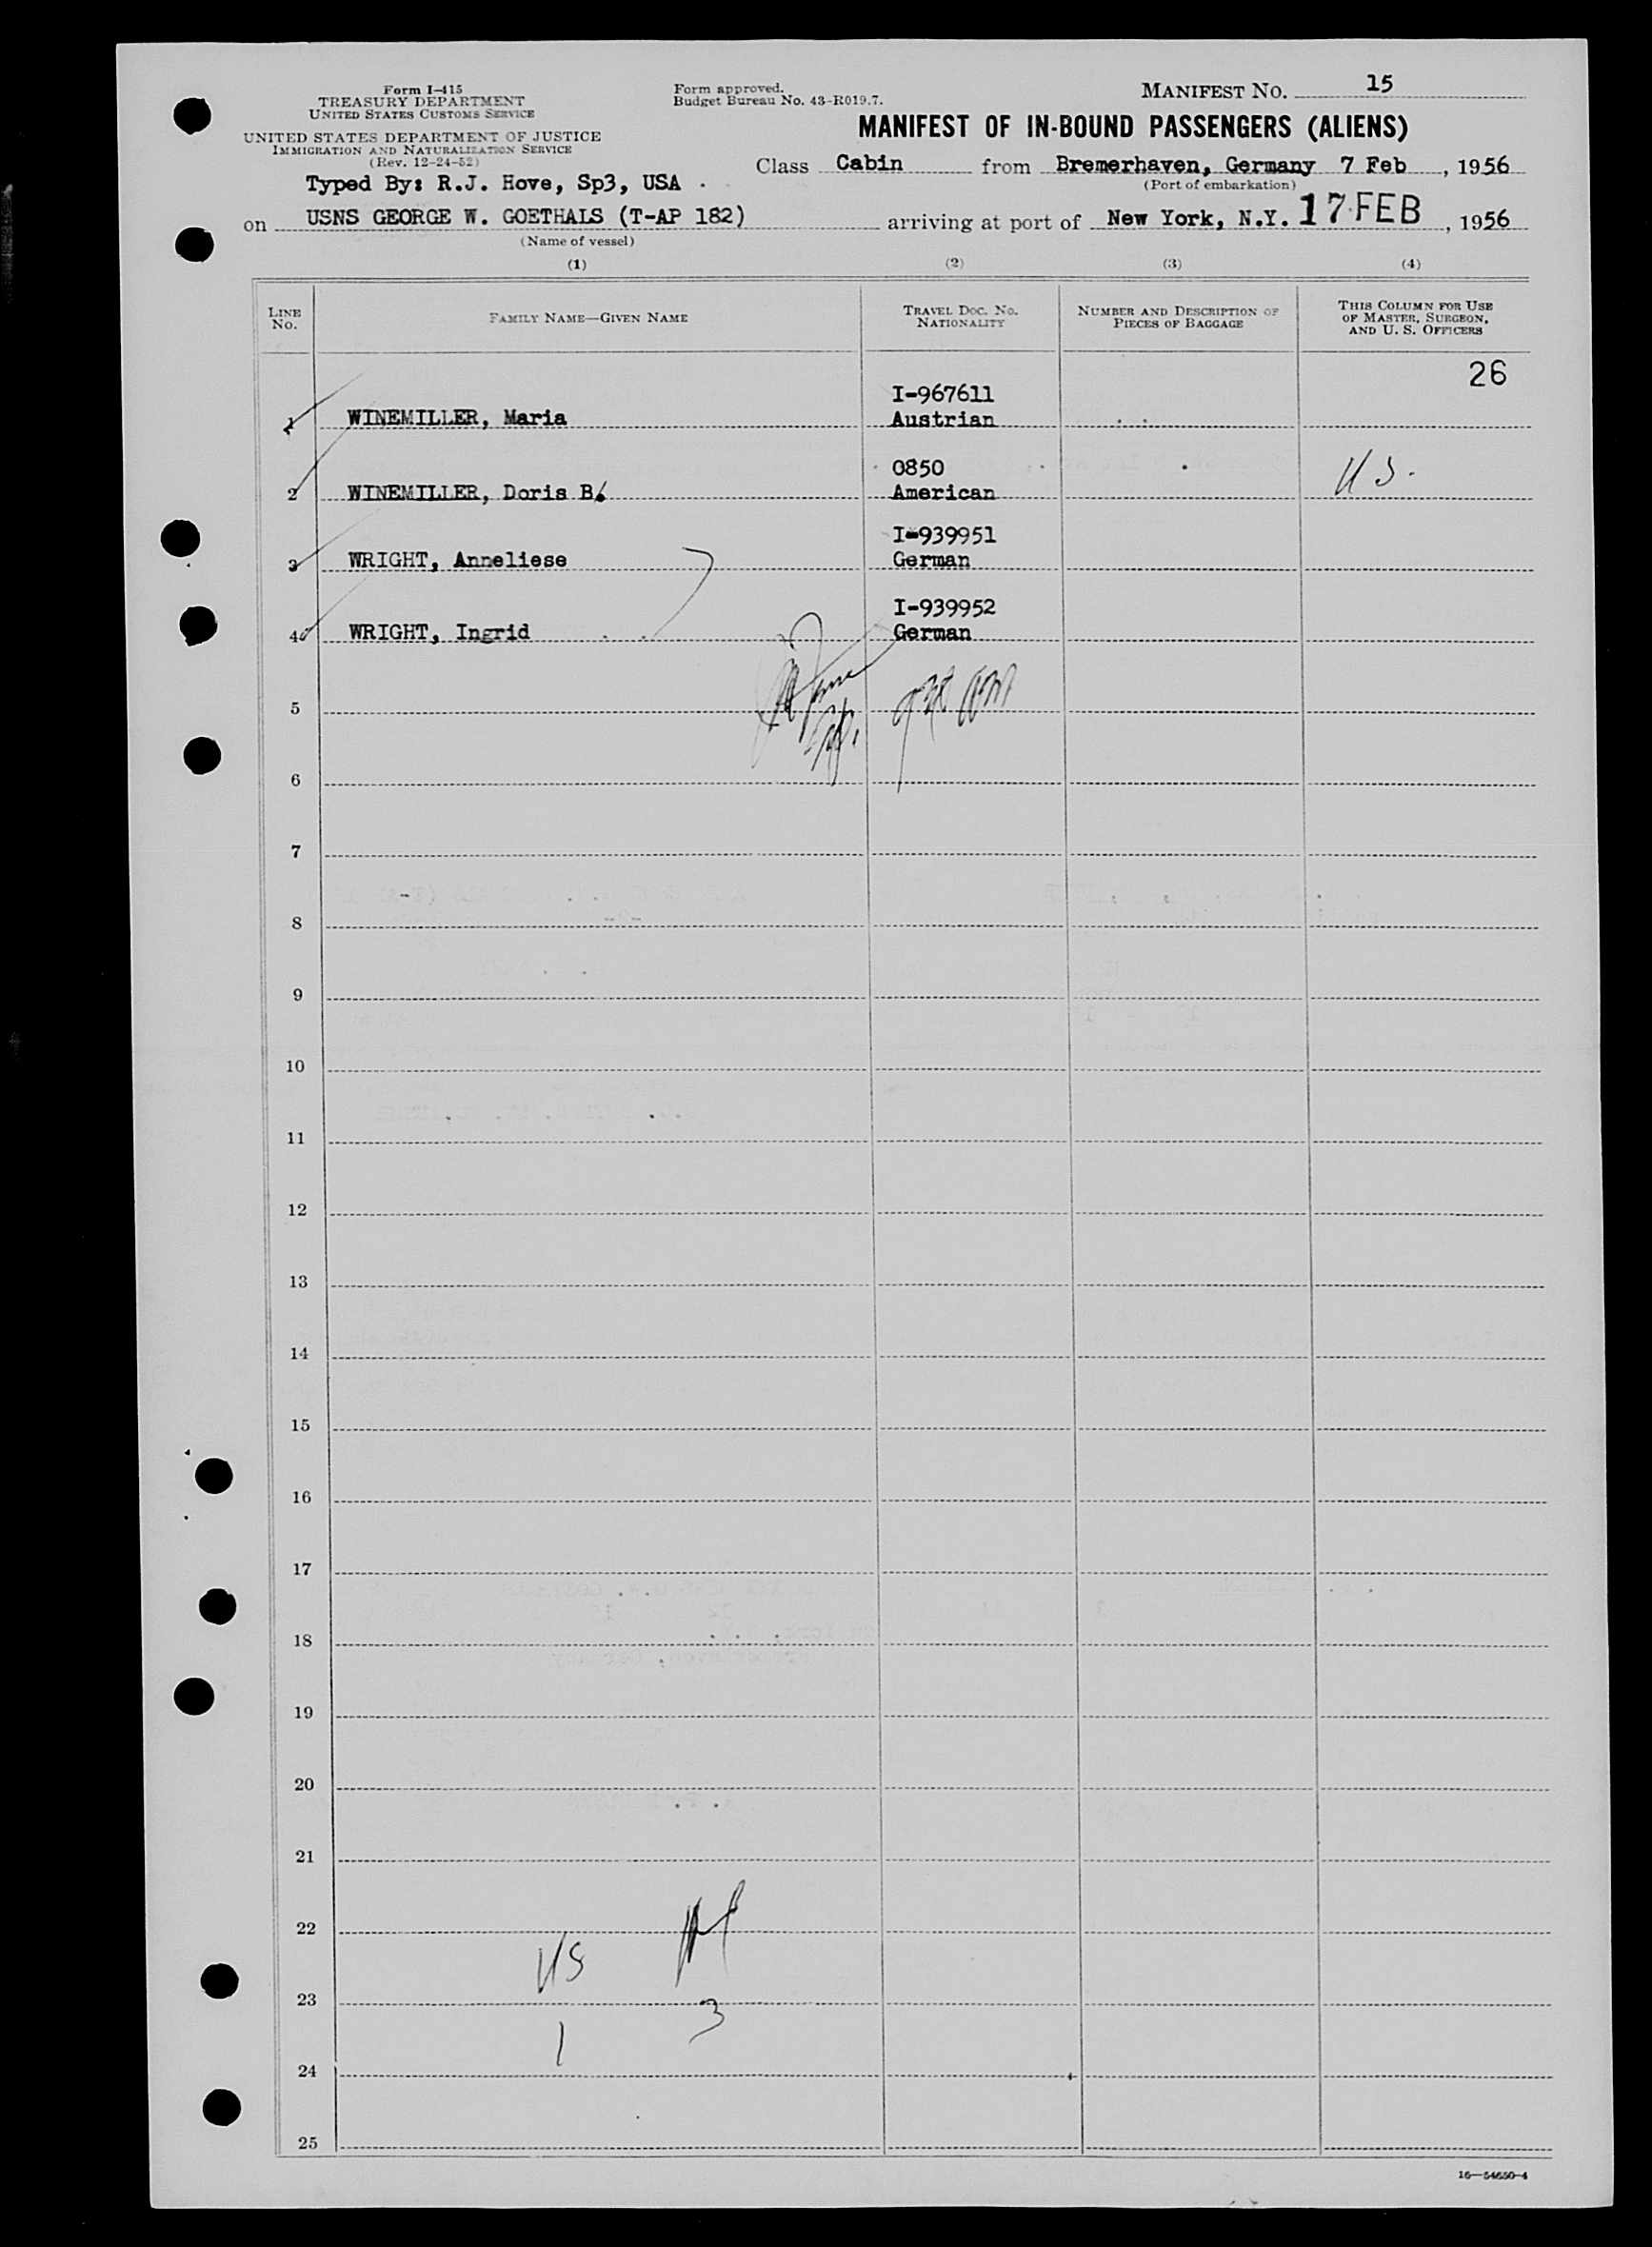 Form I-415
TREASURY DEPARTMENT
UNITED STATES CUSTOMS SERVICE
UNITED STATES DEPARTMENT OF JUSTICE
IMMIGRATION AND NATURALIZATION SERVICE
(Rev. 12-24-52)
Form approved.
Budget Bureau No. 43-R019.7.
MANIFEST NO. 15
MANIFEST OF IN-BOUND PASSENGERS (ALIENS)
Class Cabin from Bremerhaven, Germany 7 Feb, 1956
(Port of embarkation)
Typed By: R.J. Hove, Sp3, USA
on USNS GEORGE W. GOETHALS (T-AP 182) arriving at port of New York, N.Y. 17 FEB, 1956
(Name of vessel)
(1) (2) (3) (4)
LINE NO. FAMILY NAME—GIVEN NAME TRAVEL DOC. NO. NATIONALITY NUMBER AND DESCRIPTION OF PIECES OF BAGGAGE THIS COLUMN FOR USE OF MASTER, SURGEON, AND U. S. OFFICERS
26
I-967611
1 WINEMILLER, Maria Austrian
0850
2 WINEMILLER, Doris B. American US.
I-939951
3 WRIGHT, Anneliese German
I-939952
4 WRIGHT, Ingrid German
5
6
7
8
9
10
11
12
13
14
15
16
17
18
19
20
21
22
US
23
1 3
24
25
16—54650-4